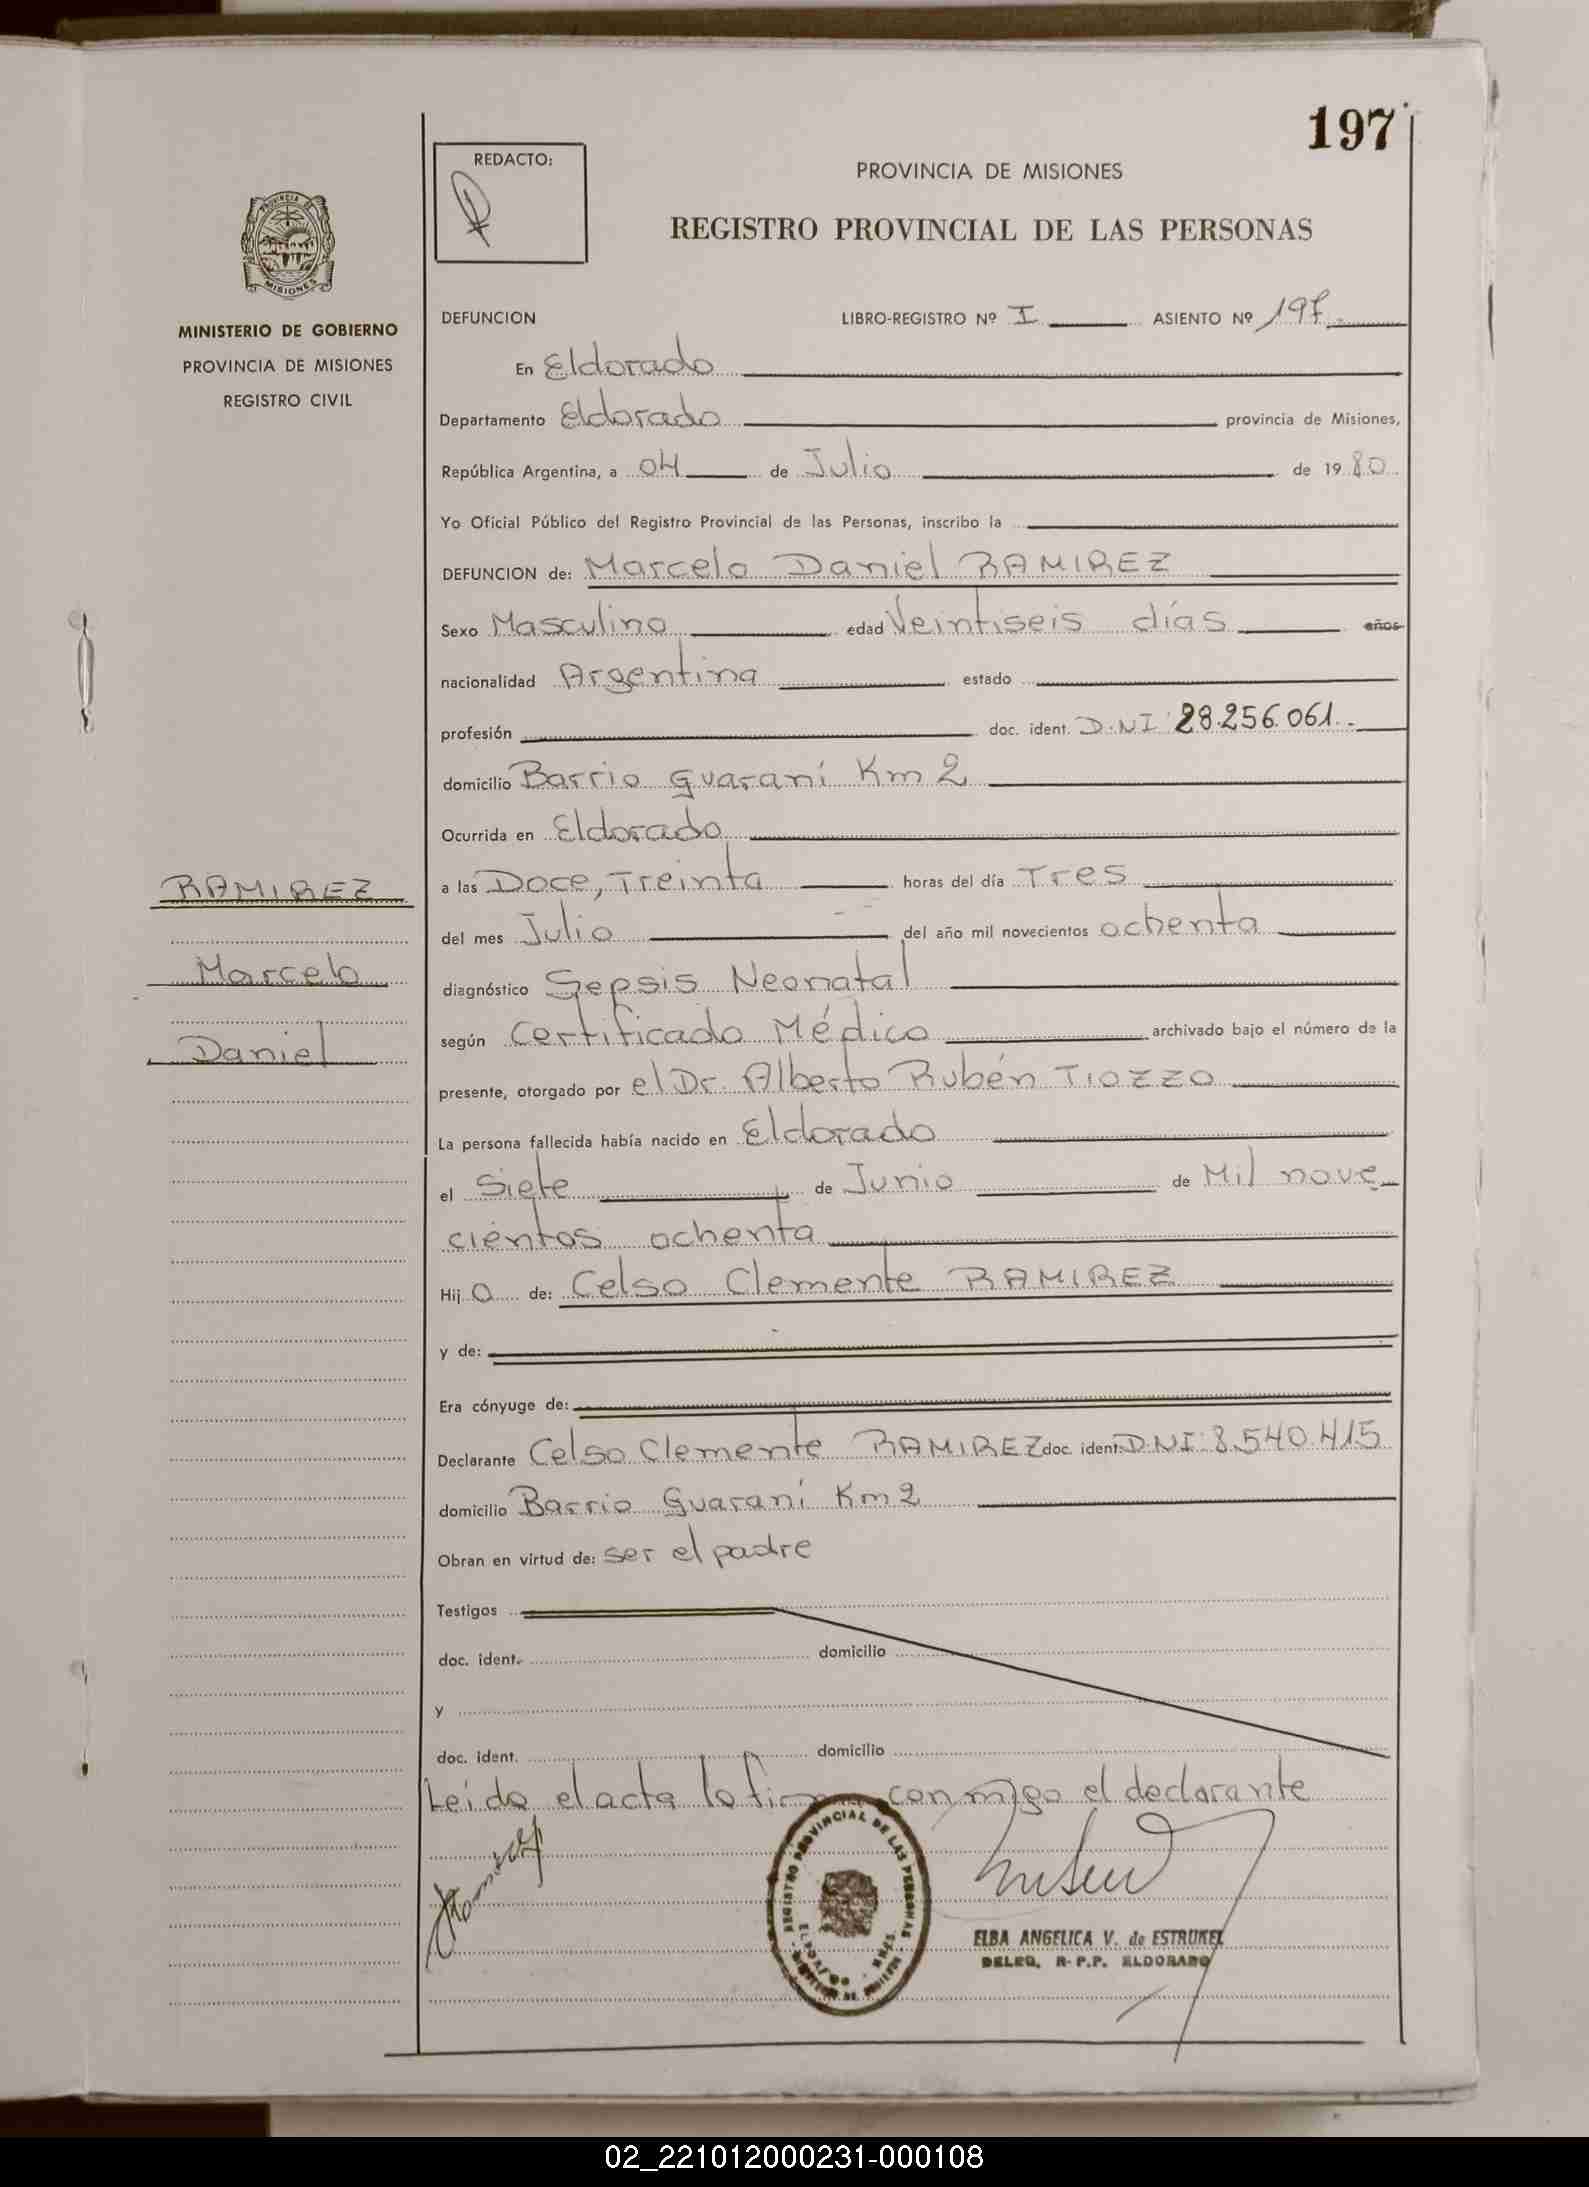 197
REDACTO:
PROVINCIA DE MISIONES
REGISTRO PROVINCIAL DE LAS PERSONAS
PROVINCIA DE
MISIONES
MINISTERIO DE GOBIERNO
PROVINCIA DE MISIONES
REGISTRO CIVIL
DEFUNCION LIBRO-REGISTRO Nº I ASIENTO Nº 197
En Eldorado
Departamento Eldorado provincia de Misiones,
República Argentina, a 04 de Julio de 19 80
Yo Oficial Público del Registro Provincial de las Personas, inscribo la
DEFUNCION de: Marcelo Daniel RAMIREZ
Sexo Masculino edad Veintiseis días años
nacionalidad Argentina estado
profesión doc. ident. D.NI 28.256.061
domicilio Barrio Guaraní Km 2
Ocurrida en Eldorado
a las Doce, Treinta horas del día Tres
del mes Julio del año mil novecientos ochenta
diagnóstico Sepsis Neonatal
según Certificado Médico archivado bajo el número de la
presente, otorgado por el Dr. Alberto Rubén TIOZZO
La persona fallecida había nacido en Eldorado
el Siete de Junio de Mil nove
cientos ochenta
Hij o de: Celso Clemente RAMIREZ
y de:
Era cónyuge de:
Declarante Celso Clemente RAMIREZ doc. ident: D.NI 8.540.415
domicilio Barrio Guaraní Km 2
Obran en virtud de: ser el padre
Testigos
doc. ident. domicilio
y
doc. ident. domicilio
Leída el acta la firma conmigo el declarante
RAMIREZ
Marcelo
Daniel
REGISTRO PROVINCIAL DE LAS PERSONAS
ELBA ANGELICA V. de ESTRUKEL
DELEG. R.P.P. ELDORADO
02_221012000231-000108